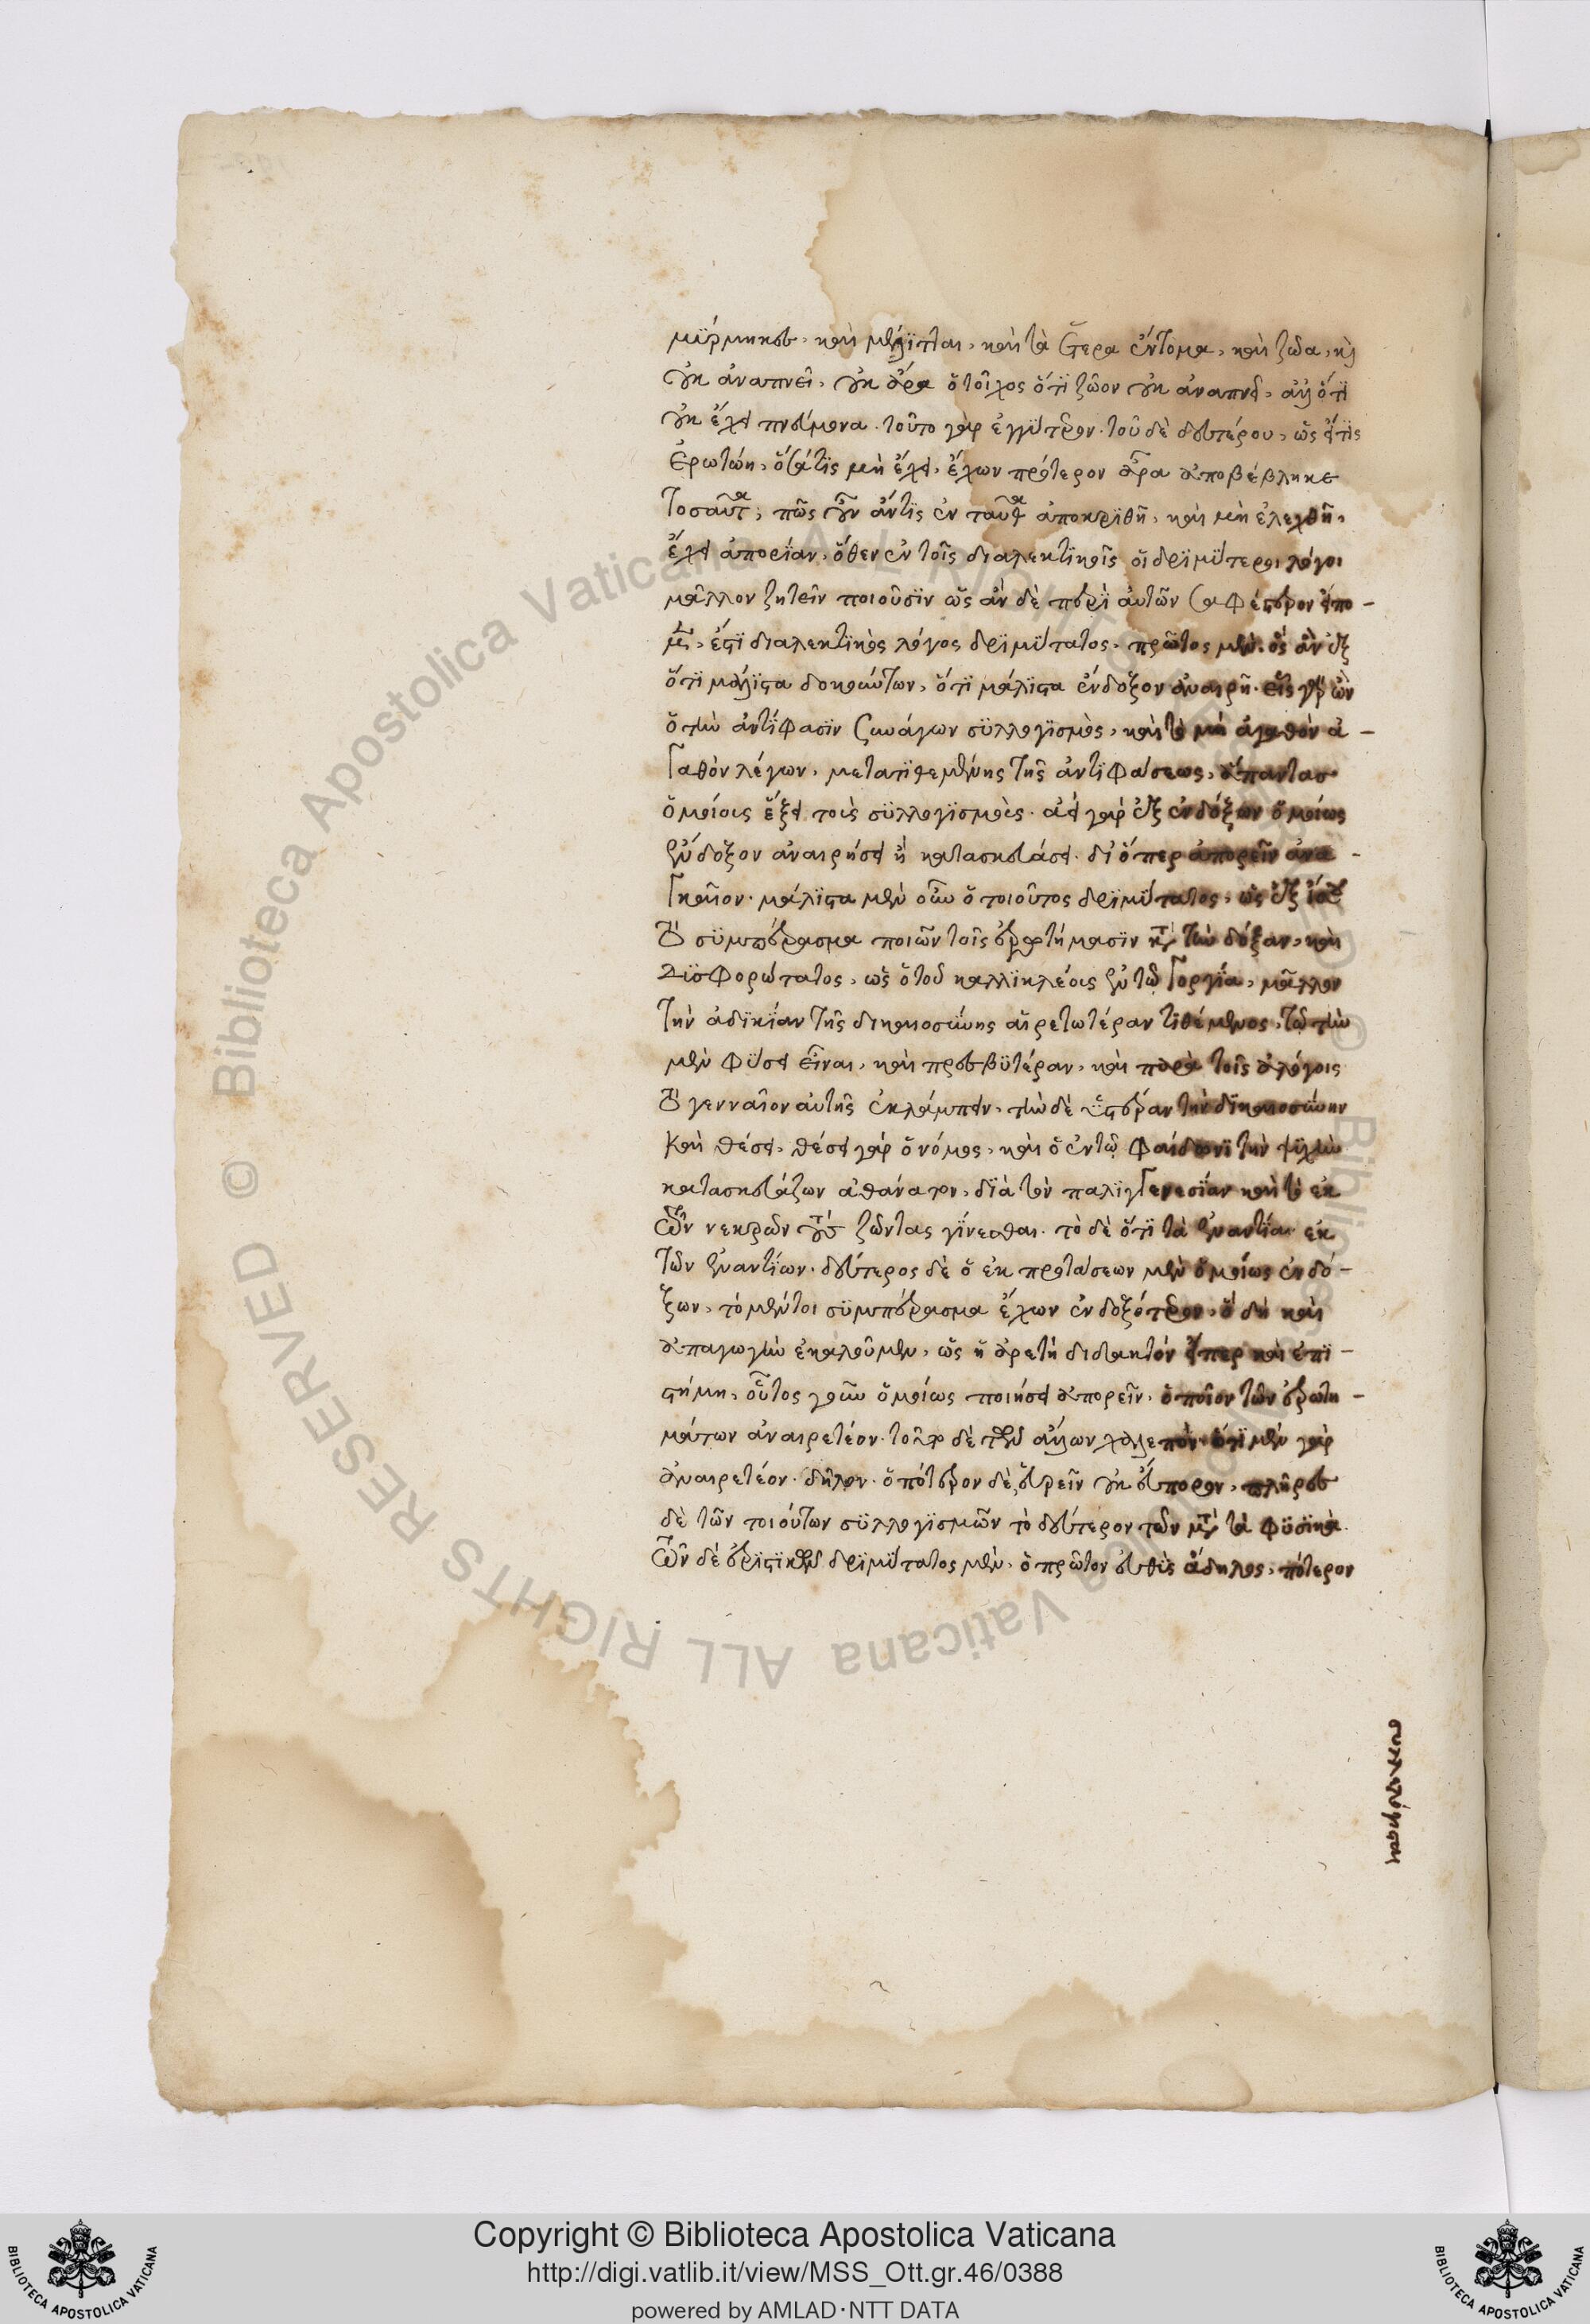 μύρμηκες, καὶ μέλιτται, καὶ τὰ ἕτερα ἔντομα, καὶ ζῶα, καὶ
οὐκ ἀναπνεῖ, οὐκ ἄρα ὁ τοῖχος ὅτι ζῶον οὐκ ἀναπνεῖ, ἀλλ' ὅτι
οὐκ ἔχει πνεύμονα. τοῦτο γὰρ ἐγγύτερον. τοῦ δὲ δευτέρου, ὡς εἴ τις
ἐρωτώη, ὅσα τίς μὴ ἔχει, ἔχων πρότερον ἆρα ἀποβέβληκε
τοσαῦτα; πῶς οὖν ἄν τις ἐν ταῦθα ἀποκριθῆ, καὶ μὴ ἐλεγχθῆ,
ἔχει ἀπορίαν, ὅθεν ἐν τοῖς διαλεκτικοῖς οἱ δριμύτεροι λόγοι
μᾶλλον ζητεῖν ποιοῦσιν ὡς ἂν δὲ περὶ αὐτῶν σαφέστερον εἴπο-
μεν, ἔστι διαλεκτικὸς λόγος δριμύτατος, πρῶτος μὲν, ὃς ἂν ἐξ
ὅτι μάλιστα δοκούντων, ὅτι μάλιστα ἔνδοξον ἀναιρῆ. εἷς γὰρ ὢν
ὁ τὴν ἀντίφασιν συνάγων συλλογισμὸς, καὶ τὸ μὴ ἀγαθὸν ἀ-
γαθὸν λέγων, μετατιθεμένης τῆς ἀντιφάσεως, ἅπαντας
ὁμοίους ἕξει τοὺς συλλογισμούς. ἀεὶ γὰρ ἐξ ἐνδόξων ὁμοίως
ἔνδοξον ἀναιρήσει ἢ κατασκευάσει. διόπερ ἀπορεῖν ἀνα-
γκαῖον. μάλιστα μὲν οὖν ὁ τοιοῦτος δριμύτατος, ὡς ἐξ ἴσου
τὸ συμπέρασμα ποιῶν τοῖς ἐρωτήμασιν κατὰ τὴν δόξαν, καὶ
δισφορώτατος, ὡς ὁ τοῦ καλλικλέους ἐν τῶ Γοργία, μᾶλλον
τὴν ἀδικίαν τῆς δικαιοσύνης αἱρετωτέραν τιθέμενος, τῶ τὴν
μὲν φύσει εἶναι, καὶ πρεσβυτέραν, καὶ παρὰ τοῖς ἀλόγοις
τὸ γενναῖον αὐτῆς ἐκλάμπειν, τὴν δὲ ὑστέραν τὴν δικαιοσύνην
καὶ θέσει, θέσει γὰρ ὁ νόμος, καὶ ὁ ἐν τῶ Φαίδωνι τὴν ψυχὴν
κατασκευάζων ἀθάνατον, διὰ τὴν παλιγγενεσίαν καὶ τὸ ἐκ
τῶν νεκρῶν τοὺς ζῶντας γίνεσθαι. τὸ δὲ ὅτι τὰ ἐναντία ἐκ
τῶν ἐναντίων. δεύτερος δὲ ὁ ἐκ προτάσεων μὲν ὁμοίως ἐνδό-
ξων, τὸ μέντοι συμπέρασμα ἔχων ἐνδοξότερον, ὃ δὴ καὶ
ἀπαγωγὴν ἐκαλοῦμεν, ὡς ἡ ἀρετὴ διδακτόν εἴπερ καὶ ἐπι-
στήμη, οὗτος γοῦν ὁμοίως ποιήσει ἀπορεῖν, ὁποῖον τῶν ἐρωτη-
μάτων ἀναιρετέον. τοῦτο δὲ τῶν ἄλλων χαλεπὸν. ὅτι μὲν γὰρ
ἀναιρετέον. δῆλον. ὁπότερον δὲ, εὑρεῖν οὐκ εὔπορον, πλήρες
δὲ τῶν τοιούτων συλλογισμῶν τὸ δεύτερον τῶν μετὰ τὰ φυσικὰ.
τῶν δὲ ἐριστικῶν δριμύτατος μὲν, ὁ πρῶτον εὐθὺς ἄδηλος, πότερον
Copyright © Biblioteca Apostolica Vaticana
http://digi.vatlib.it/view/MSS_Ott.gr.46/0388
powered by AMLAD·NTT DATA